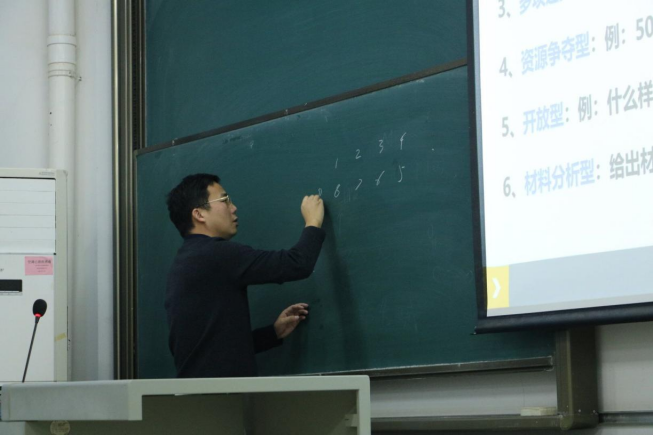 1 2 3 4
8 7 6 5
4、资源争夺型：例：50
5、开放型：例：什么样
6、材料分析型：给出材